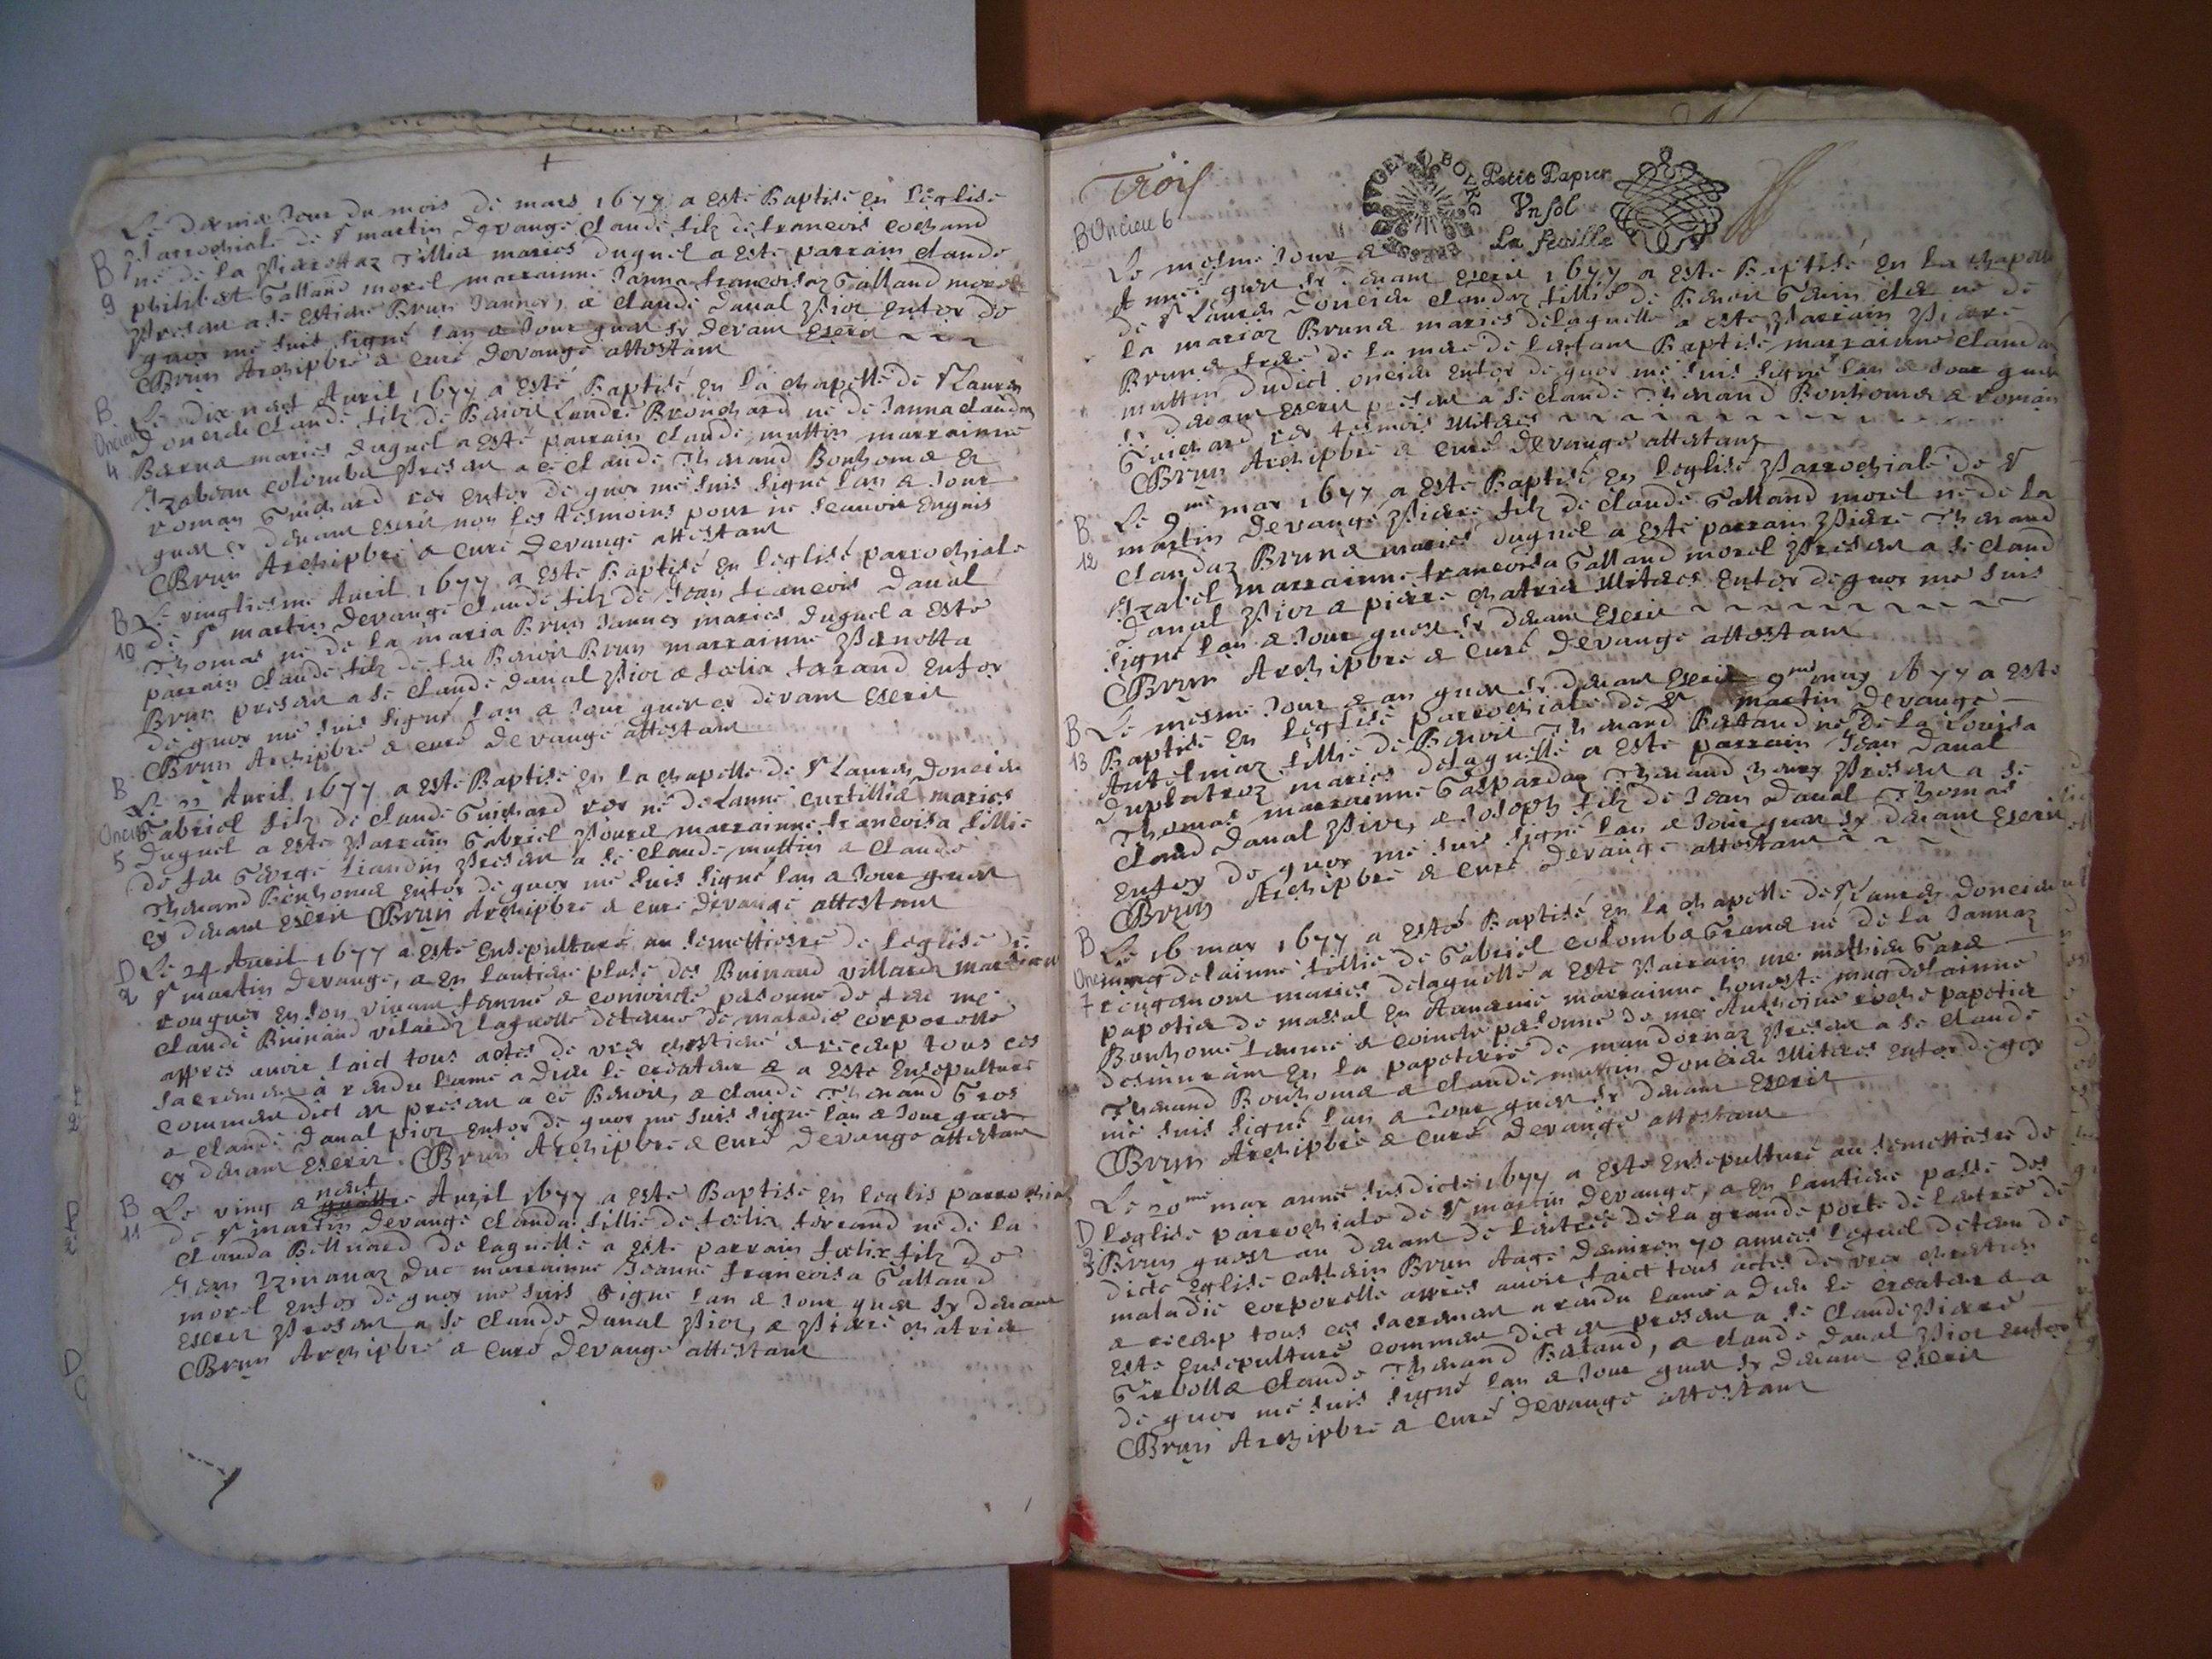 Le dernier Jour du mois de mars 1677 a esté Baptisé en l'eglise
B parrochiale de St martin devange claude filz de francois cochand
9 né de la pierrettaz Tillier mariés duquel a esté parrain claude
philibert Galland morel marrainne Janna francoisaz Galland morel
presan a se estiene Brun Jannos, a claude Danal pior enfor de
quox me suis signé lan a Jour quer sy devam escri
Brun Archipbre a curé devange attestam
B Le dix neuf Auril 1677 a esté Baptisé en la chapelle de St Lauren
Oncieu Doncieu claude filz de Benoit Brouchard né de Janna claudaz
4 Berna mariés duquel a esté parrain claude muttin marrainne
Izabeau colomba presan a cé claude Themand Bonhome et
roman Guichard ror enfor de quox me suis signé lan a Jour
quer cy devam escri non les tesmoins pour ne scauoir enquis
Brun Archipbre a curé devange attestam
B Le vingtiesme Auril 1677 a esté Baptisé en leglise parrochiale
10 de St martin devange claude filz de Jean francois Danal
Thomas né de la maria Brun Jannos mariés duquel a esté
parrain claude filz de feu Benoit Brun marrainne pernotta
Brun presan a se claude Danal pior a felix ferand enfor
de quox me suis signé lan a Jour quer cy devam escri
Brun Archipbre a curé devange attestam
B Le 22 Auril 1677 a esté Baptisé en la chapelle de St Lauren Doncieu
Oncieu Gabriel filz de claude Guichard ror né de Lanne curtillie mariés
5 duquel a esté parrain Gabriel marrainne francoisa fillie
de feu George Liandin presan a se claude muttin a claude
Themand Bonhome enfor de quox me suis signé lan a Jour quer
cy devam escri Brun Archipbre a curé devange attestam
D Le 24 Auril 1677 a esté ensepulturé au semettiere de leglise de
2 St martin devange, a en lantiene plase des Buinand villarde
rouguer en son vivam femme a coniointe persone de feu me
claude Buinand vilardz laquelle detenue de maladie corporelle
appres auoir faict tous actes de vrer chrestiene a receup tous ces
sacremen a rendu lame a Dieu le createur a a esté ensepulture
commen dict er presan a cé Benoit, a claude Themand Gros
a claude Danal pior enfor de quox me suis signé lan a Jour quer
cy devam escri. Brun Archipbre a curé devange attestam
B Le ving a neuf Auril 1677 a esté Baptisé en leglis parrochial
11 de St martin devange clauda fillie de felix ferrand né de la
clauda Bellnard de laquelle a esté parrain felix filz de
Jean duc marrainne Jeanne francoisa Galland
morel enfor de quox me suis signé lan a Jour quer sy devam
escri presan a se claude Danal pior, a pierre chatrier
Brun Archipbre a curé devange attestam
Trois
Petit Papier
Vn sol
La feuille
B Oncieu 6
Le mesme Jour a
Anné quer sy devam escri 1677 a esté Baptisé en la chapelle
de St Lauren Doncieu claudaz fillie de Benoit né de
la mariaz Bruna mariés delaquelle a esté parrain pierre
Bruna frere de la mere de lenfam Baptisé marrainne claudaz
muttin dudict oncieu enfor de quox me suis signé lan a Jour quer
sy devam escri presan a se claude Themand Bonhome a romain
Guichard ror tesmois illiteres
Brun Archipbre a curé devange attestam
B Le 9me may 1677 a esté Baptisé en leglise parrochiale de St
12 martin devange pierre filz de claude Galland morel né de la
claudaz Bruna mariés duquel a esté parrain pierre Themand
Izabel marrainne francoisa Galland morel presan a se claud
Danal pior a pierre chatrier illiteres enfor de quox me suis
signé lan a Jour quer sy devam escri
Brun Archipbre a curé devange attestam
B Le mesme Jour a an quer sy devam escri 9me may 1677 a esté
13 Baptisé en leglise parrochiale de St martin devange
Antelmaz fillie de Benoit Themand Bertand né de la Louisa
duplatroz mariés delaquelle a esté parrain Jean Danal
Thomas marrainne Gaspardaz Themand presan a se
claud Danal pior, a Joseph filz de Jean Danal Thomas
enfor de quox me suis signé lan a Jour quer sy devam escri
Brun Archipbre a curé devange attestam
B Le 16 may 1677 a esté Baptisé en la chapelle de St Lauren Doncieu
Oncieu magdelainne fillie de Gabriel colomba Grand né de la Jannaz
7 mariés delaquelle a esté parrain me mathieu
papetier de marrainne honeste magdelainne
Bonhome femme a coincte persone de me Anthoine roche papetier
demuram en la papeterie de presan a se claude
Themand Bonhome a claude muttin Doncieu illiteres enfor de qox
me suis signé lan a Jour quer sy devam escri
Brun Archipbre a curé devange attestam
Le 20me may anne susdicte 1677 a esté ensepulturé au semettiere de
D leglise parrochiale de St martin devange, a en lantiene passe des
3 Brun quest au devam de lentrée de la grande porte de lentrée de
dicte eglise cathrin Brun Aagé denviron 70 annees lequel detenu de
maladie corporelle appres auoir faict tous actes de vrer chrestien
a receup tous ces sacremen a rendu lame a Dieu le createur a a
esté ensepulturé commen dict er presan a se claude pierre
claude Themand Bertand, a claude Danal pior enfor
de quox me suis signé lan a Jour quer sy devam escri
Brun Archipbre a curé devange attestam